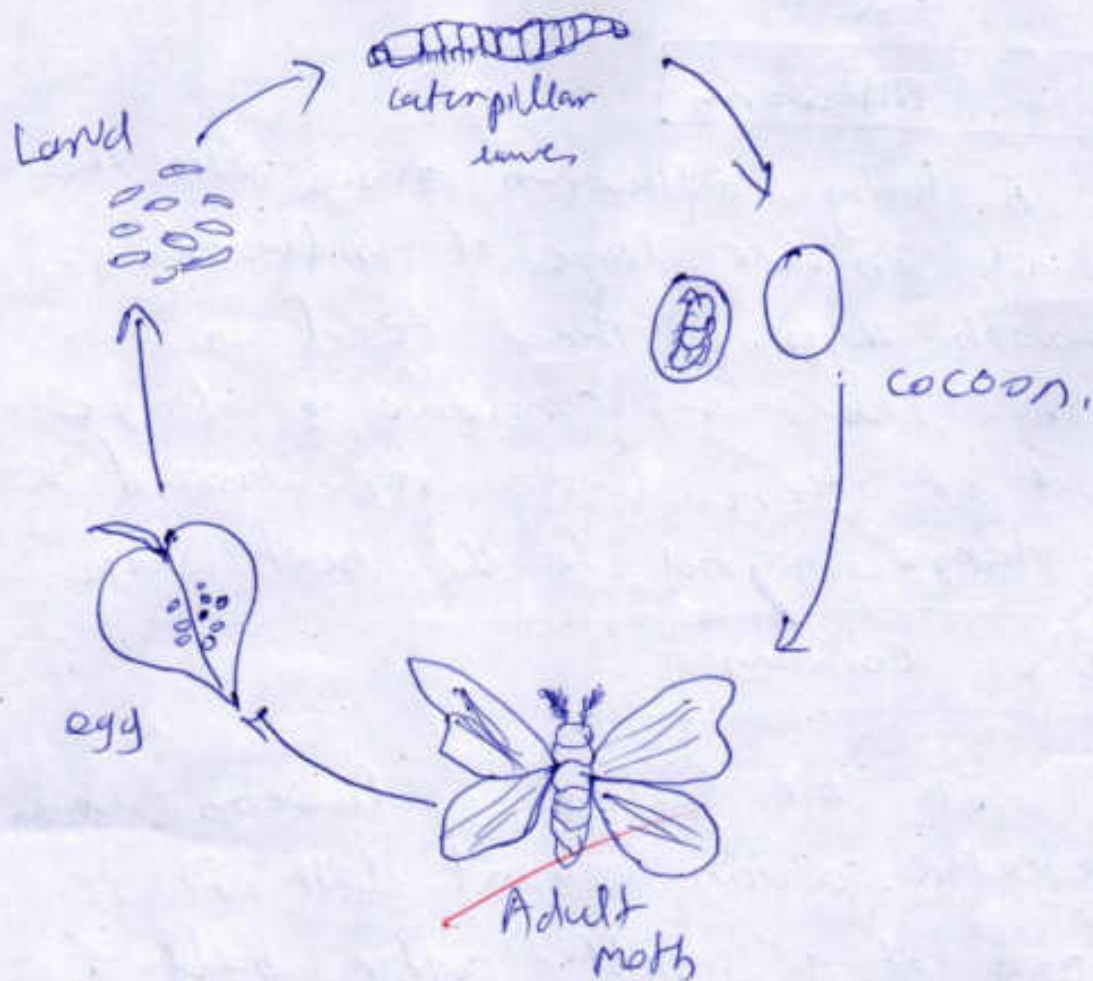 caterpillar
Larvd
cocoon.
egg
Adult
moth